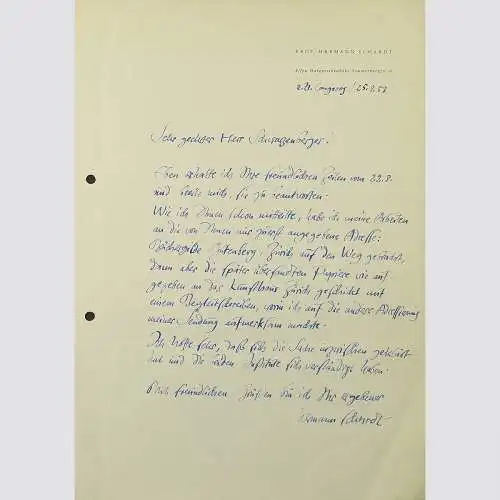 PROF. HERMANN SCHARDT
z.Zt. 25.8.58
Sehr geehrter Herr Schwarzenberger!
Eben erhalte ich Ihre freundlichen Zeilen vom 22.8.
und beeile mich, sie zu beantworten.
Wie ich Ihnen schon mitteilte, habe ich meine Arbeiten
an die von Ihnen mir zuerst angegebene Adresse:
Büchergilde Gutenberg, Zürich auf den Weg gebracht,
dann aber die später übersandten Papiere wie an-
gegeben an das Kunsthaus Zürich geschickt mit
einem Begleitschreiben, worin ich auf die andere Adressierung
meiner Sendung aufmerksam machte.
Ich hoffe sehr, daß sich die Sache inzwischen geklärt
hat und die beiden Institute sich verständigt haben.
Mit freundlichen Grüßen bin ich Ihr ergebener
Hermann Schardt